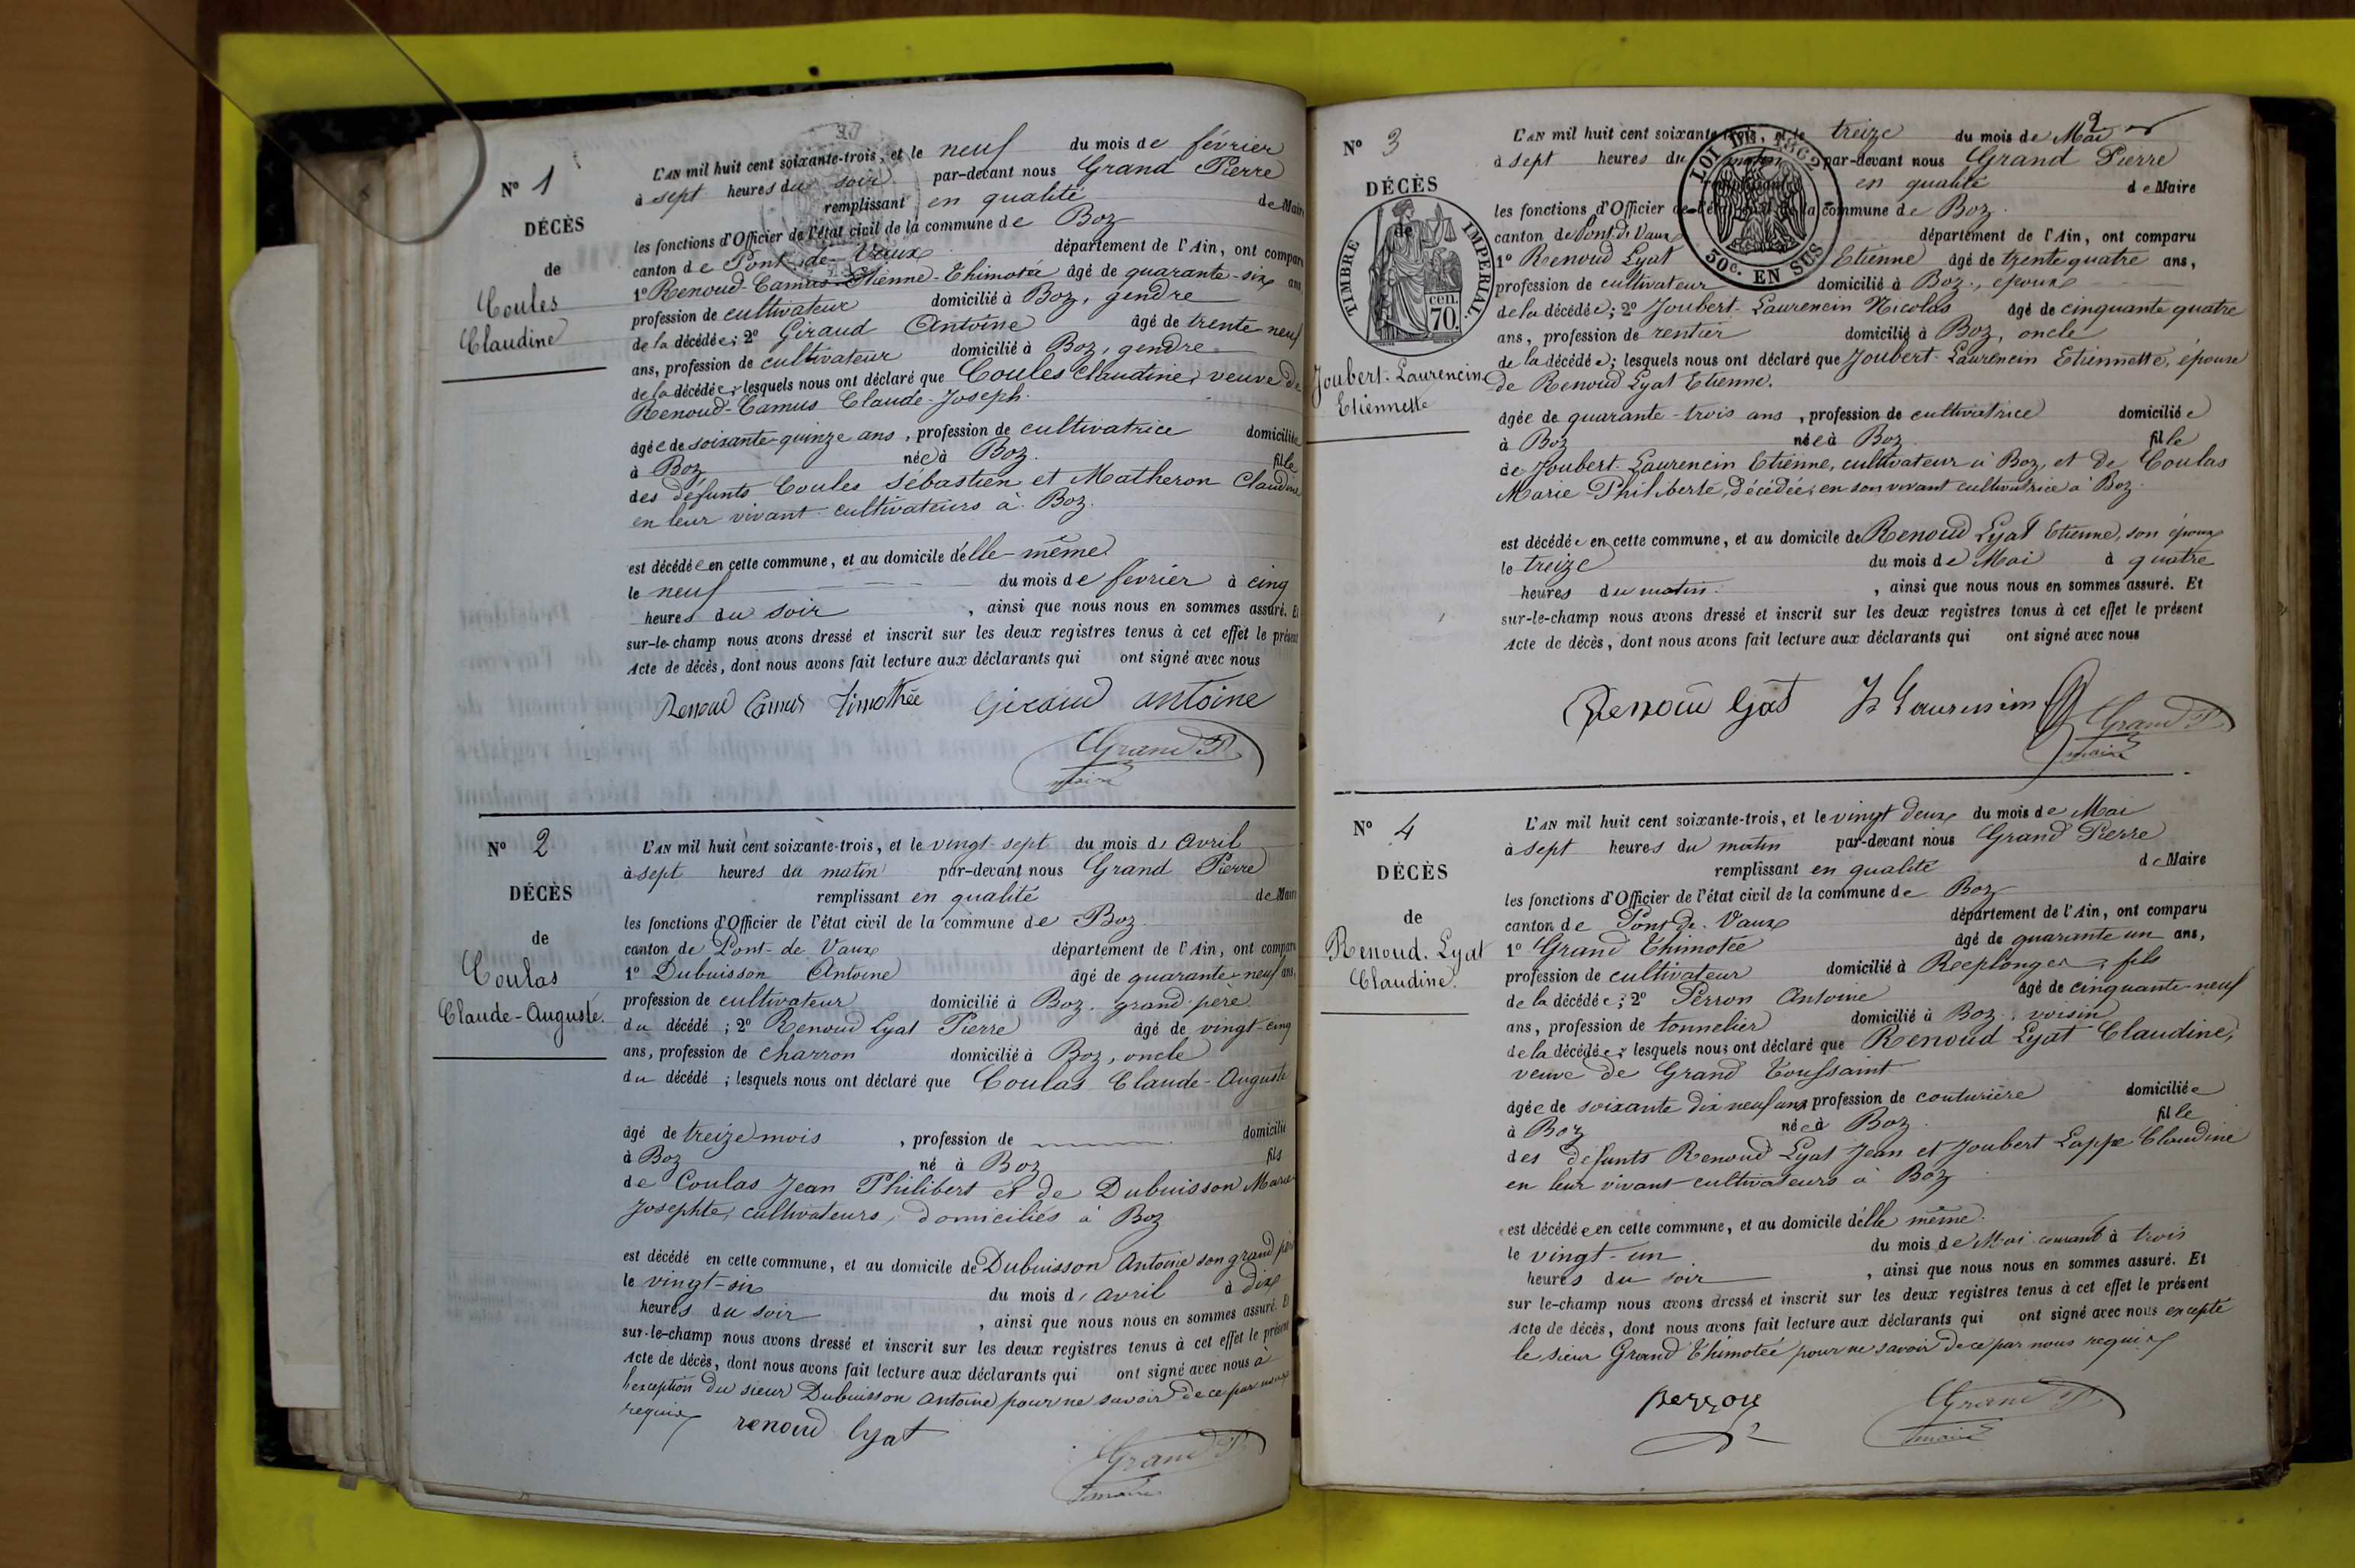 N° 1
DÉCÈS
de
Coules
Claudine
L'AN mil huit cent soixante-trois, et le neuf du mois de février
à sept heures du soir par-devant nous Grand Pierre
remplissant en qualité de Maire
les fonctions d'Officier de l'état civil de la commune de Boz
canton de Pont-de-Vaux département de l'Ain, ont comparu
1° Renoud-Camus Etienne-Thimotée âgé de quarante-six ans
profession de cultivateur domicilié à Boz, gendre
de la décédée; 2° Giraud Antoine âgé de trente neuf
ans, profession de cultivateur domicilié à Boz, gendre
de la décédée; lesquels nous ont déclaré que Coules Claudine, veuve de
Renoud-Camus Claude-Joseph.
âgée de soixante-quinze ans, profession de cultivatrice domiciliée
à Boz née à Boz. fille
des défunts Coules Sébastien et Matheron Claudine
en leur vivant cultivateurs à Boz.
est décédée en cette commune, et au domicile d'elle-même
le neuf du mois de février à cinq
heures du soir, ainsi que nous nous en sommes assuré. Et
sur-le-champ nous avons dressé et inscrit sur les deux registres tenus à cet effet le présent
Acte de décès, dont nous avons fait lecture aux déclarants qui ont signé avec nous
Renoud Camus timothée Giraud antoine
Grand P.
maire
N° 2
DÉCÈS
de
Coulas
Claude-Auguste.
L'AN mil huit cent soixante-trois, et le vingt-sept du mois d'avril
à sept heures du matin par-devant nous Grand Pierre
remplissant en qualité de Maire
les fonctions d'Officier de l'état civil de la commune de Boz
canton de Pont-de Vaux département de l'Ain, ont comparu
1° Dubuisson Antoine âgé de quarante-neuf ans,
profession de cultivateur domicilié à Boz. grand-père
du décédé; 2° Renoud Lyat Pierre âgé de vingt-cinq
ans, profession de charron domicilié à Boz, oncle
du décédé; lesquels nous ont déclaré que Coulas Claude-Auguste
âgé de treize mois, profession de domicilié
à Boz né à Boz fils
de Coulas Jean Philibert et de Dubuisson Marie
Josephte, cultivateurs, domiciliés à Boz
est décédé en cette commune, et au domicile de Dubuisson Antoine son grand père
le vingt-six du mois d'avril à dix
heures du soir, ainsi que nous nous en sommes assuré. Et
sur-le-champ nous avons dressé et inscrit sur les deux registres tenus à cet effet le présent
Acte de décès, dont nous avons fait lecture aux déclarants qui ont signé avec nous à
l'exception du sieur Dubuisson Antoine pour ne savoir de ce par nous
requis renoud lyat
Grand P.
maire
2
N° 3
DÉCÈS
de
TIMBRE IMPÉRIAL.
cen.
70.
LOI DE 1862
50c. EN SUS
Joubert-Laurencin
Etiennette
L'AN mil huit cent soixante-trois, et le treize du mois de Mai
à sept heures du matin par-devant nous Grand Pierre
remplissant en qualité de Maire
les fonctions d'Officier de l'état civil de la commune de Boz
canton de Pont de Vaux département de l'Ain, ont comparu
1° Renoud Lyat Etienne âgé de trente quatre ans,
profession de cultivateur domicilié à Boz, époux
de la décédée; 2° Joubert-Laurencin Nicolas âgé de cinquante quatre
ans, profession de rentier domicilié à Boz, oncle
de la décédée; lesquels nous ont déclaré que Joubert-Laurencin Etiennette, épouse
de Renoud Lyat Etienne.
âgée de quarante-trois ans, profession de cultivatrice domiciliée
à Boz née à Boz fille
de Joubert-Laurencin Etienne, cultivateur à Boz, et de Coulas
Marie Philiberte, décédée, en son vivant cultivatrice à Boz.
est décédée en cette commune, et au domicile de Renoud Lyat Etienne, son époux
le treize du mois de Mai à quatre
heures du matin., ainsi que nous nous en sommes assuré. Et
sur-le-champ nous avons dressé et inscrit sur les deux registres tenus à cet effet le présent
Acte de décès, dont nous avons fait lecture aux déclarants qui ont signé avec nous
Renoud lyat Jt Laurencin
Grand P.
maire
N° 4
DÉCÈS
de
Renoud. Lyat
Claudine.
L'AN mil huit cent soixante-trois, et le vingt deux du mois de Mai
à sept heures du matin par-devant nous Grand Pierre
remplissant en qualité de Maire
les fonctions d'Officier de l'état civil de la commune de Boz
canton de Pont de Vaux département de l'Ain, ont comparu
1° Grand Thimotée âgé de quarante un ans,
profession de cultivateur domicilié à Replonges, fils
de la décédée; 2° Perron Antoine âgé de cinquante-neuf
ans, profession de tonnelier domicilié à Boz, voisin
de la décédée; lesquels nous ont déclaré que Renoud Lyat Claudine,
veuve de Grand Toussaint
âgée de soixante dix neuf ans, profession de couturière domiciliée
à Boz née à Boz. fille
des défunts Renoud Lyat Jean et Joubert Lappe Claudine
en leur vivant cultivateurs à Boz
est décédée en cette commune, et au domicile d'elle même.
le vingt-un du mois de Mai courant à trois
heures du soir, ainsi que nous nous en sommes assuré. Et
sur le-champ nous avons dressé et inscrit sur les deux registres tenus à cet effet le présent
Acte de décès, dont nous avons fait lecture aux déclarants qui ont signé avec nous excepté
le sieur Grand Thimotée pour ne savoir de ce par nous requis
perron
Grand P.
maire